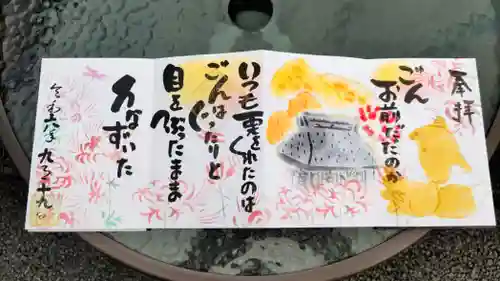 奉拝
ごん
お前だったのか
いつも栗をくれたのは
ごんはぐったりと
目を閉じたまま
うなずいた
令和六年九月十九日